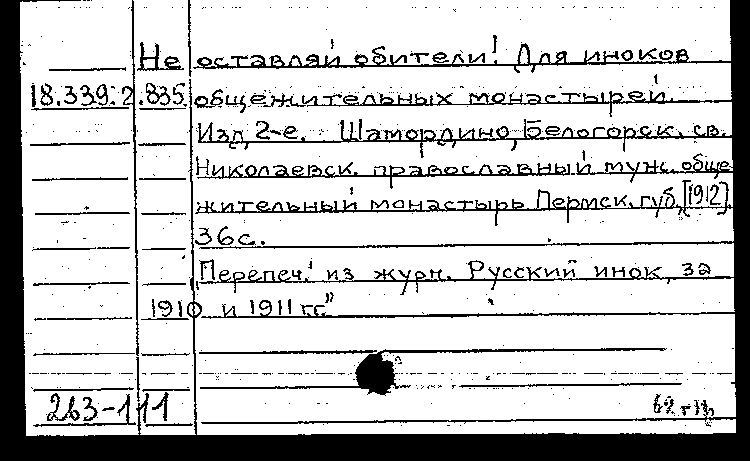 Не оставляй обители! Для иноков
18.339.2.835 общежительных монастырей.
Изд. 2-е. Шамордино, Белогорск. св.
Николаевск. православный муж. обще
жительный монастырь Пермск. губ., [1912].
36 с.
"Перепеч. из журн. Русский инок, за
1910 и 1911 гг."
263-111